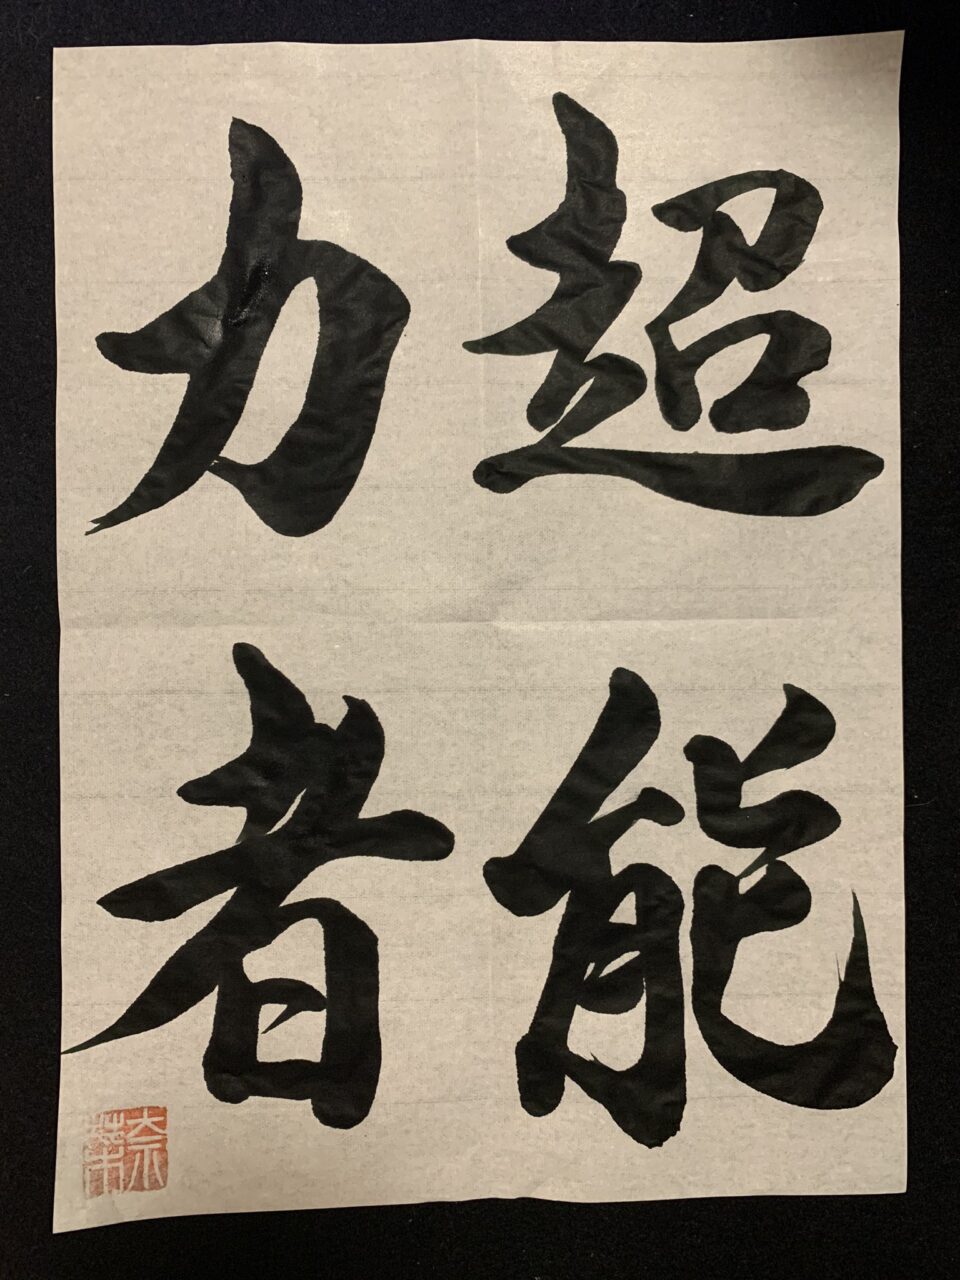 超能
力者
奈菜